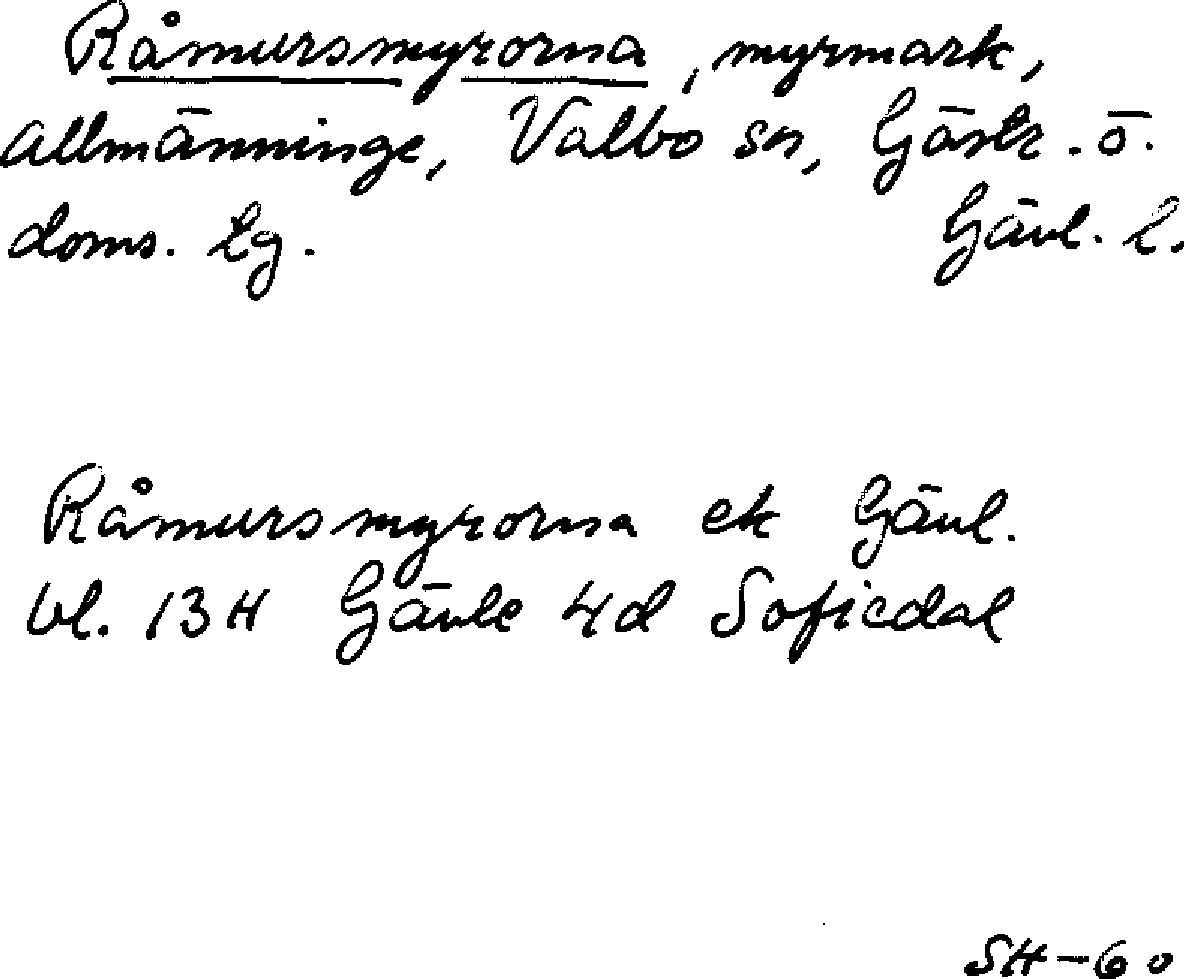 Råmursmyrorna, myrmark,
Allmänninge, Valbo sn, Gästr. ö.
doms. tg. Gävl. l.
Råmursmyrorna ek Gävl.
bl. 13H Gävle 4d Sofiedal
SH-60